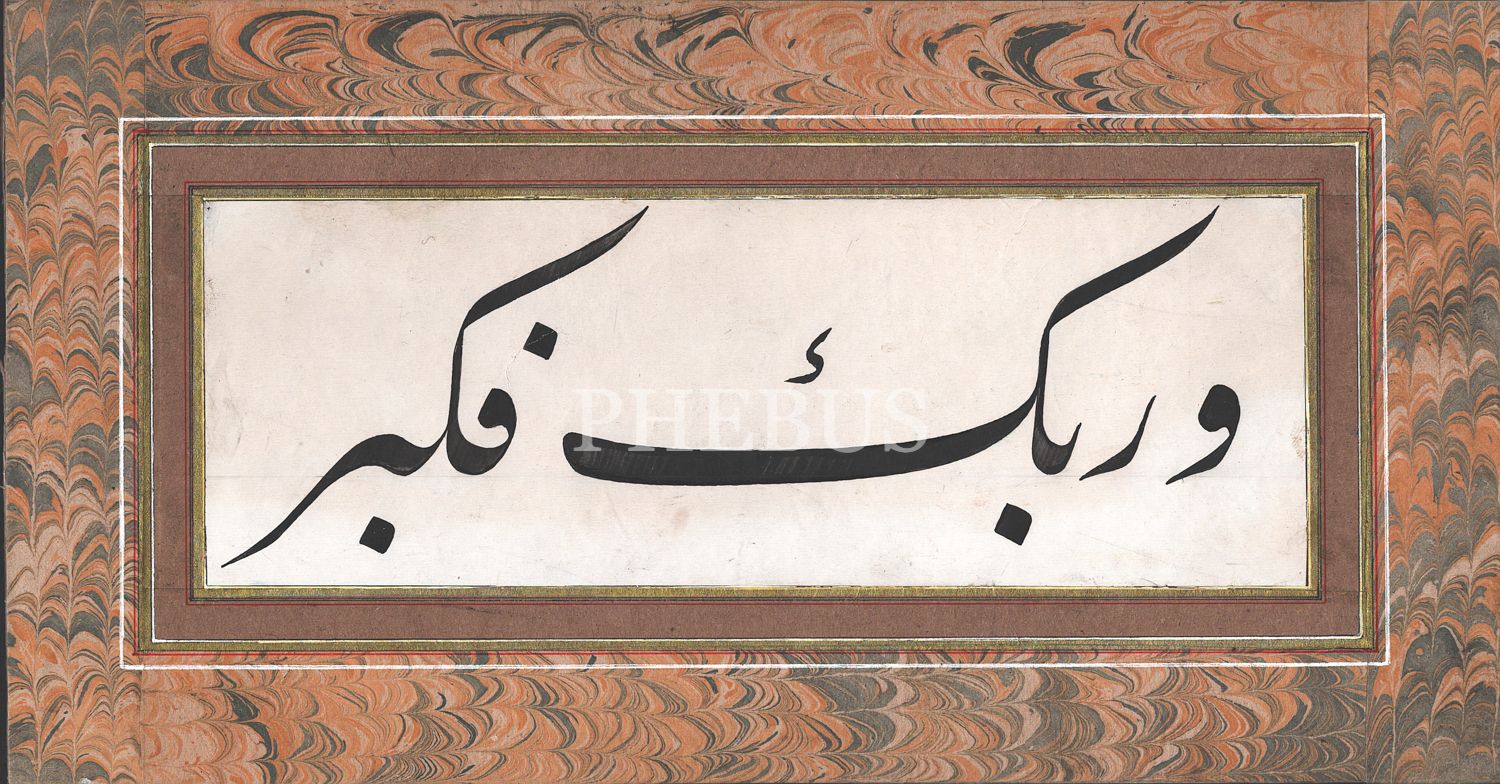 وربك فكبر
PHEBUS